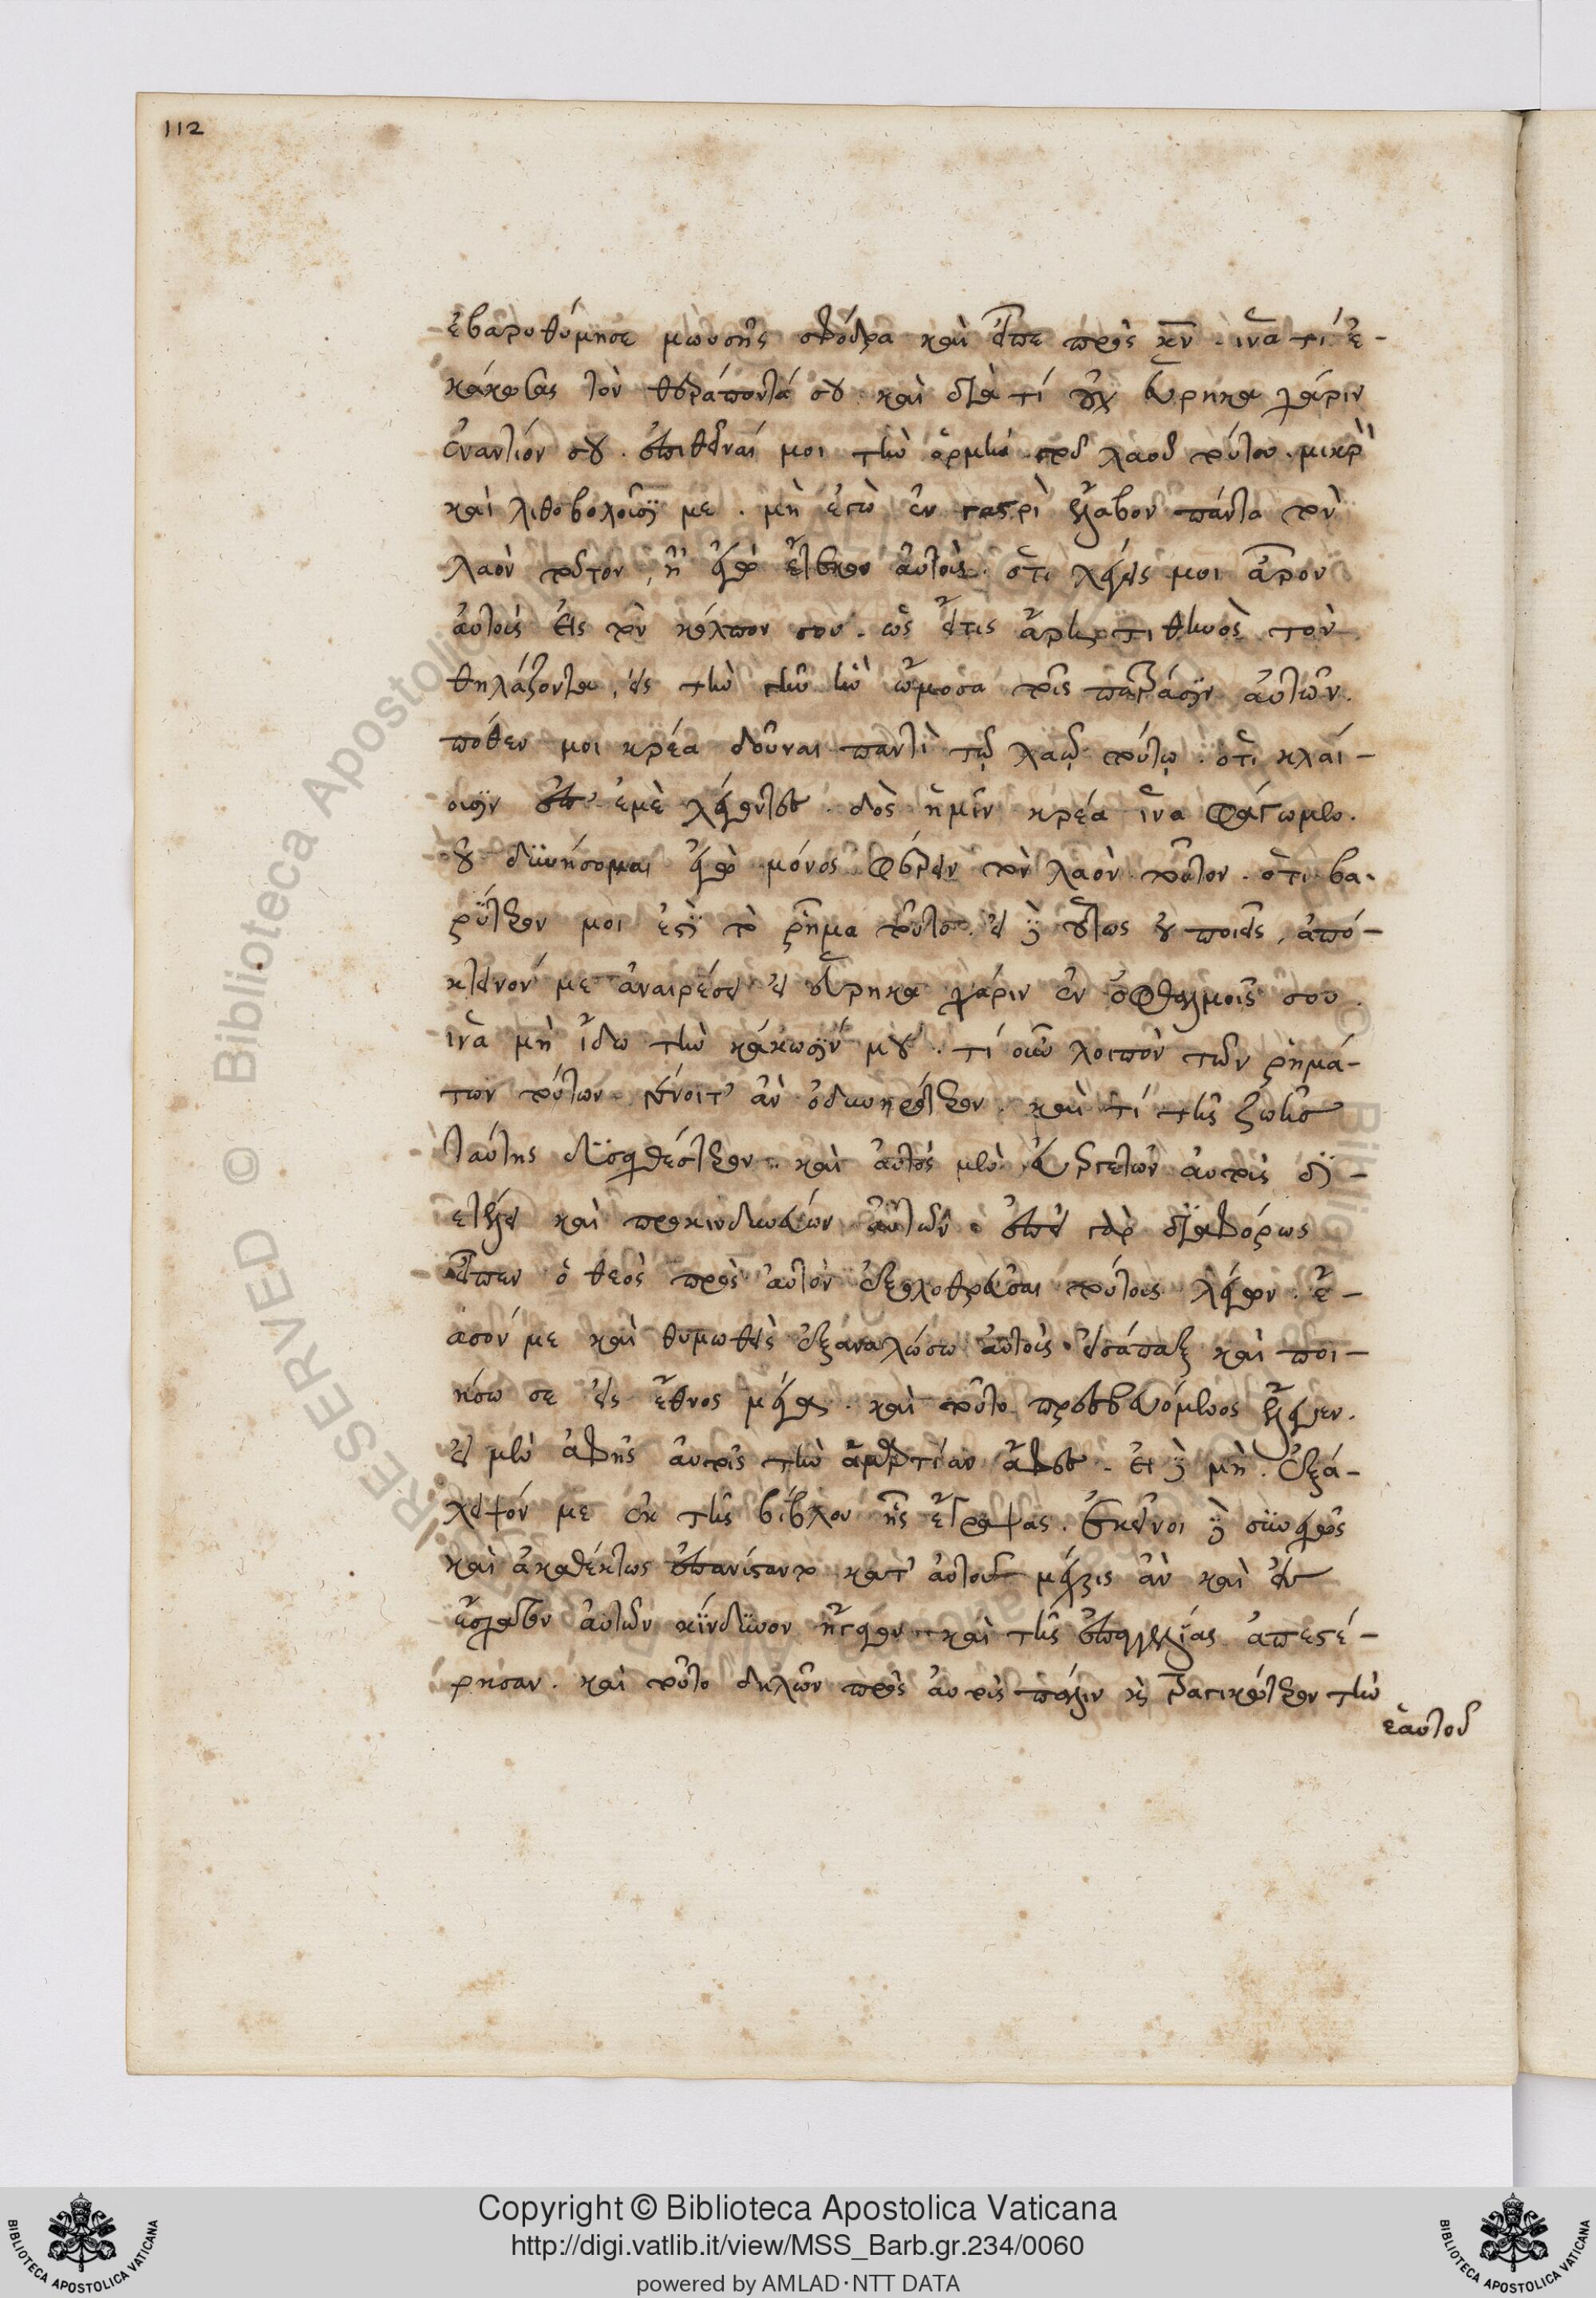 112
ἐβαρυθύμησε μωυσῆς σφόδρα καὶ εἶπε πρὸς κν. ἵνα τί ἐ-
κάκωσας τὸν θεράποντά σου. καὶ διὰ τί οὐχ εὕρηκα χάριν
ἐναντίον σου. ἐπιθεῖναί μοι τὴν ὁρμὴν τοῦ λαοῦ τούτου. μικρὸν
καὶ λιθοβολοῦσί με. μὴ ἐγὼ ἐν γαστρὶ ἔλαβον πάντα τὸν
λαὸν τοῦτον, ἢ ἐγὼ ἔτεκον αὐτούς. ὅτι λέγεις μοι ἆρον
αὐτοὺς εἰς τὸν κόλπον σου. ὡς εἴτις ἄρῃ τιθηνὸς τὸν
θηλάζοντα, εἰς τὴν γῆν ἣν ὤμοσα τοῖς πατράσιν αὐτῶν.
πόθεν μοι κρέα δοῦναι παντὶ τῷ λαῷ τούτῳ. ὅτι κλαί-
ουσιν ἐπ' ἐμὲ λέγοντες. δὸς ἡμῖν κρέα ἵνα φάγωμεν.
οὐ δυνήσομαι ἐγὼ μόνος φέρειν τὸν λαὸν τοῦτον. ὅτι βα-
ρύτερόν μοι ἐστὶ τὸ ῥῆμα τοῦτο. εἰ δὲ οὕτως σὺ ποιεῖς, ἀπό-
κτεινόν με ἀναιρέσει εἰ εὕρηκα χάριν ἐν ὀφθαλμοῖς σου.
ἵνα μὴ ἴδω τὴν κάκωσίν μου. τί οὖν λοιπὸν τῶν ῥημά-
των τούτων γένοιτ' ἂν ὀδυνηρότερον. καὶ τί τῆς ζωῆς
ταύτης δυσχερέστερον. καὶ αὐτὸς μὲν εὐεργετῶν αὐτοὺς δι-
ετέλει καὶ προκινδυνεύων αὐτῶν. ἐπεὶ γὰρ διαφόρως
εἶπεν ὁ θεὸς πρὸς αὐτὸν ἐξολοθρεῦσαι τούτους λέγων. ἔ-
ασόν με καὶ θυμωθεὶς ἐξαναλώσω αὐτοὺς εἰσάπαξ καὶ ποι-
ήσω σε εἰς ἔθνος μέγα. καὶ τοῦτο πρεσβευόμενος ἔλεγεν.
εἰ μὲν ἀφῇς αὐτοῖς τὴν ἁμαρτίαν ἄφες. εἰ δὲ μὴ. ἐξά-
λειψόν με ἐκ τῆς βίβλου ἧς ἔγραψας. ἐκεῖνοι δὲ συνεχῶς
καὶ ἀκαθέκτως ἐπανίσταντο κατ' αὐτοῦ μέχρις ἂν καὶ εἰς
ἔσχατον αὐτὸν κίνδυνον ἤγαγον. καὶ τῆς ἐπαγγελίας ἀπεστέ-
ρησαν. καὶ τοῦτο δηλῶν πρὸς αὐτοὺς πάλιν καὶ τραγικώτερον τὴν
ἑαυτοῦ
Copyright © Biblioteca Apostolica Vaticana
http://digi.vatlib.it/view/MSS_Barb.gr.234/0060
powered by AMLAD·NTT DATA